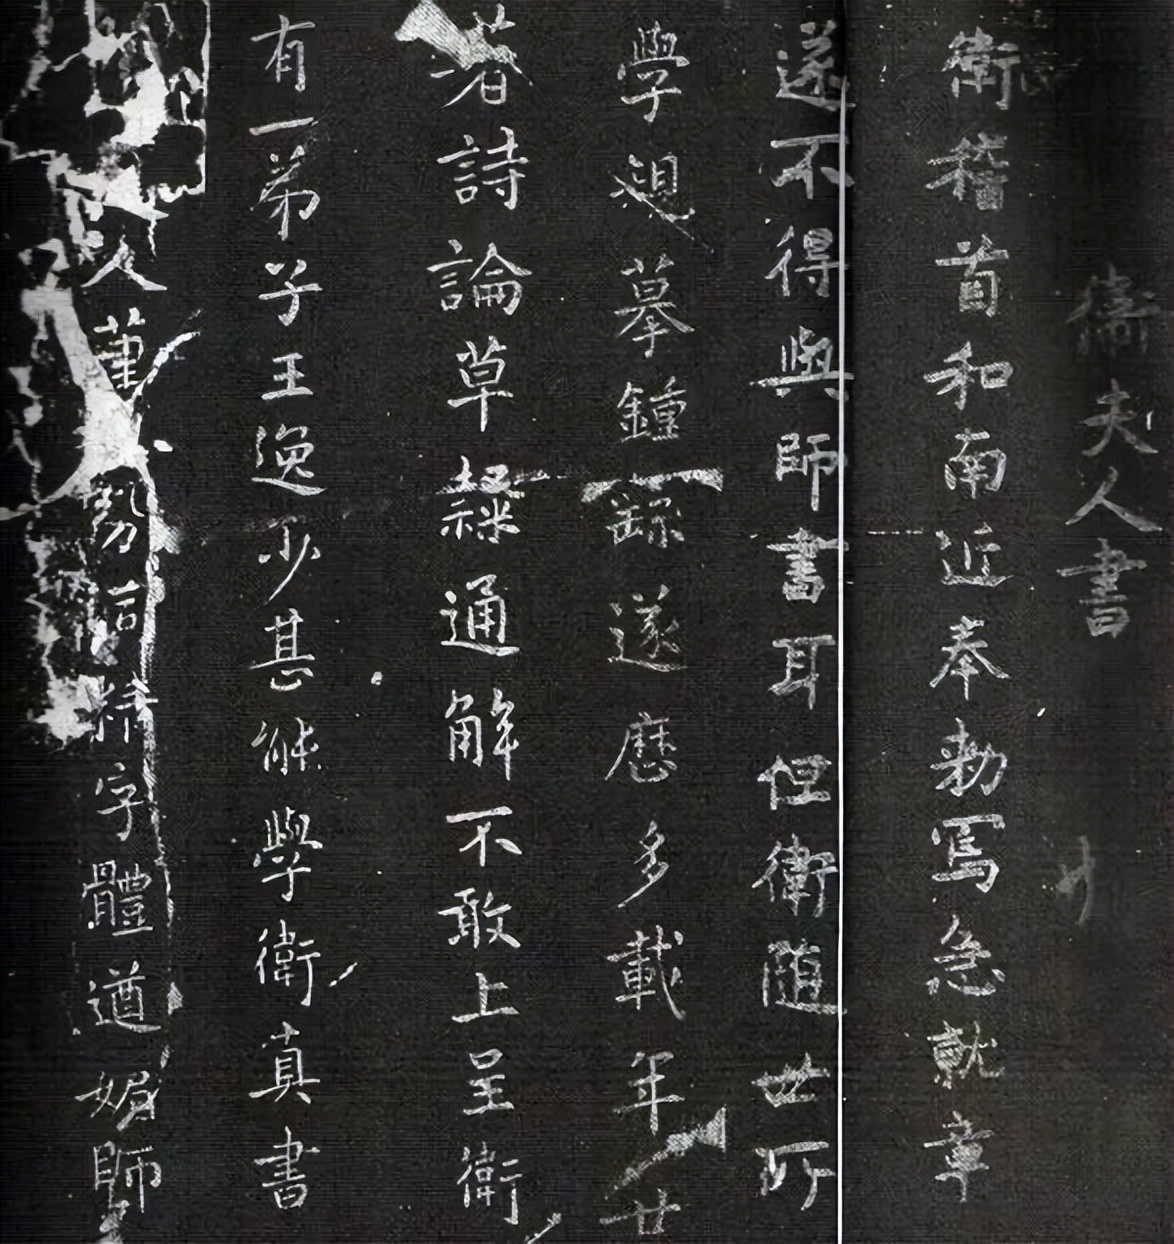 衛夫人書
衛稽首和南近奉勅写急就章
遂不得與師書耳但衛随世所
學規摹鍾繇遂歷多載年廿
著詩論草隸通解不敢上呈衛
有一弟子王逸少甚能學衛真書
人
字體遒媚師